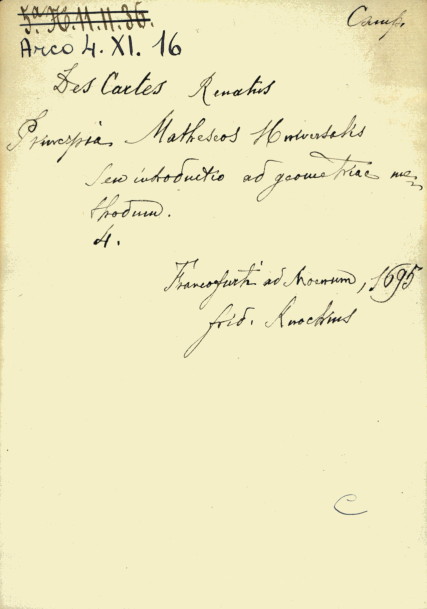 5ª H.11.II.36.
Camp.
Arco 4. XI. 16
Des Cartes Renatus
Principia Matheseos Universalis
Seu introductio ad geometriae me-
thodum.
4.
Francofurti ad Moenum, 1695
frid. Knochius
C